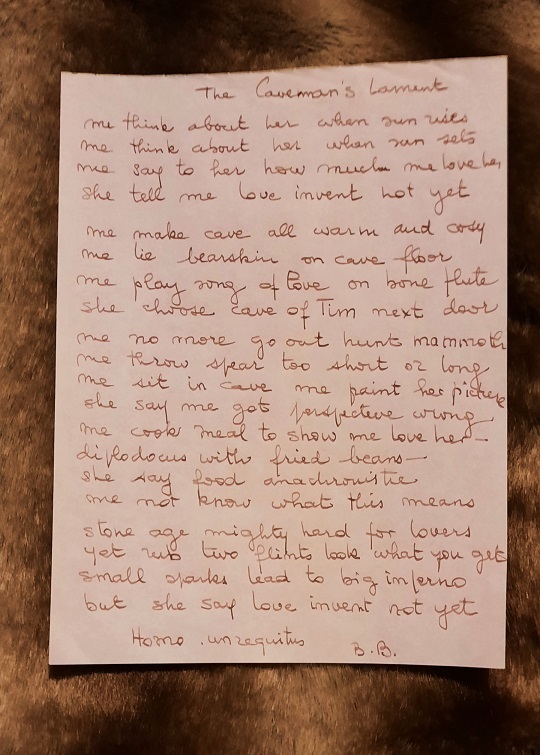 The Caveman's Lament
me think about her when sun rises
me think about her when sun sets
me say to her how much me love her
she tell me love invent not yet
me make cave all warm and cosy
me lie bearskin on cave floor
me play song of love on bone flute
she choose cave of Tim next door
me no more go out hunt mammoth
me throw spear too short or long
me sit in cave me paint her picture
she say me got perspective wrong
me cook meal to show me love her —
diplodocus with fried beans —
she say food anachronistic
me not know what this means
stone age mighty hard for lovers
yet rub two flints look what you get
small sparks lead to big inferno
but she say love invent not yet
Homo unrequitus
B.B.